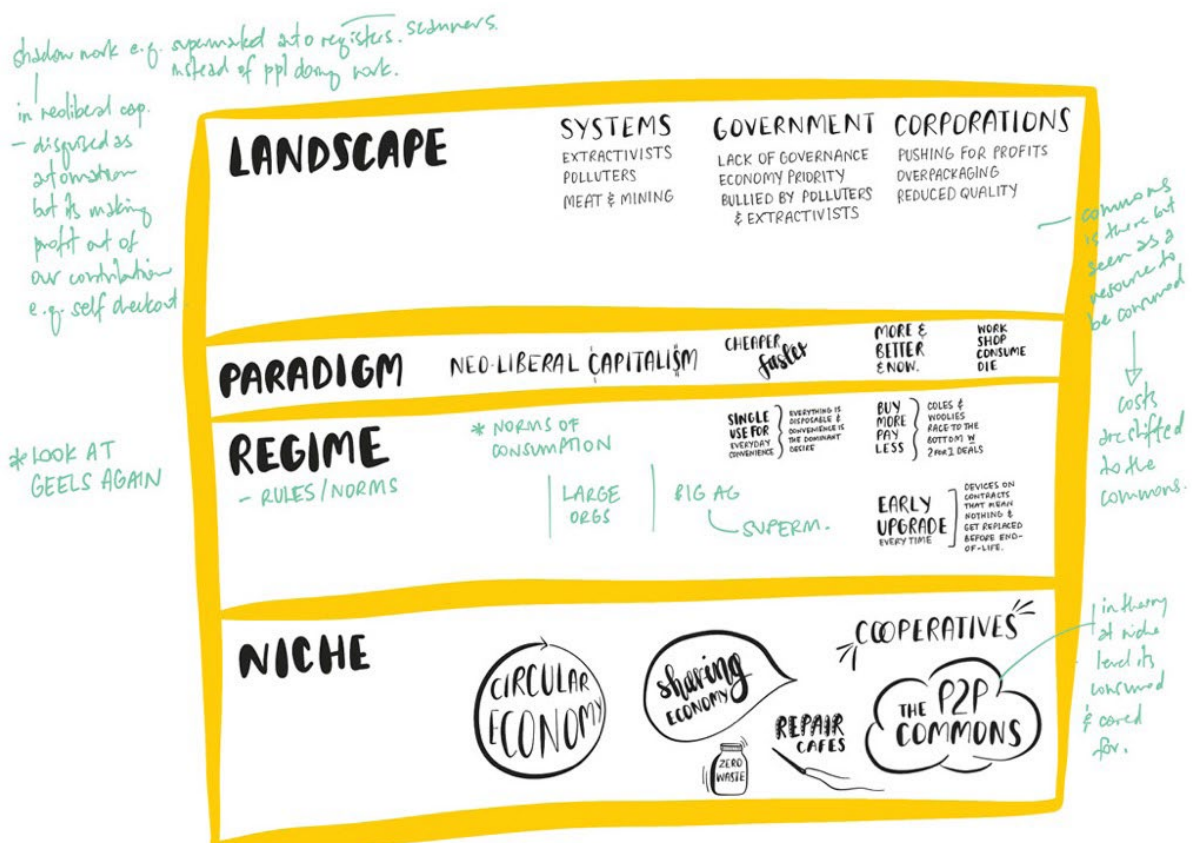 shadow work e.g. supermarked auto registers. scanners.
instead of ppl doing work.
in neoliberal cap.
- disguised as
automation
but its making
profit out of
our contribution
e.g. self checkout
LANDSCAPE
SYSTEMS
EXTRACTIVISTS
POLLUTERS
MEAT & MINING
GOVERNMENT
LACK OF GOVERNANCE
ECONOMY PRIORITY
BULLIED BY POLLUTERS
& EXTRACTIVISTS
CORPORATIONS
PUSHING FOR PROFITS
OVERPACKAGING
REDUCED QUALITY
commons
is there but
seen as a
resource to
be consumed
costs
are shifted
to the
commons.
PARADIGM
NEO-LIBERAL CAPITALISM
CHEAPER,
faster
MORE &
BETTER
& NOW.
WORK
SHOP
CONSUME
DIE
* LOOK AT
GEELS AGAIN
REGIME
- RULES/NORMS
* NORMS OF
CONSUMPTION
LARGE
ORGS
BIG AG
SUPERM.
SINGLE
USE FOR
EVERYDAY
CONVENIENCE
EVERYTHING IS
DISPOSABLE &
CONVENIENCE IS
THE DOMINANT
DESIRE
BUY
MORE
PAY
LESS
COLES &
WOOLIES
RACE TO THE
BOTTOM W
2 FOR 1 DEALS
EARLY
UPGRADE
EVERY TIME
DEVICES ON
CONTRACTS
THAT MEAN
NOTHING &
GET REPLACED
BEFORE END-
OF-LIFE.
NICHE
CIRCULAR
ECONOMY
sharing
ECONOMY
ZERO
WASTE
REPAIR
CAFES
COOPERATIVES
THE P2P
COMMONS
in theory
at niche
level its
consumed
& cared
for.